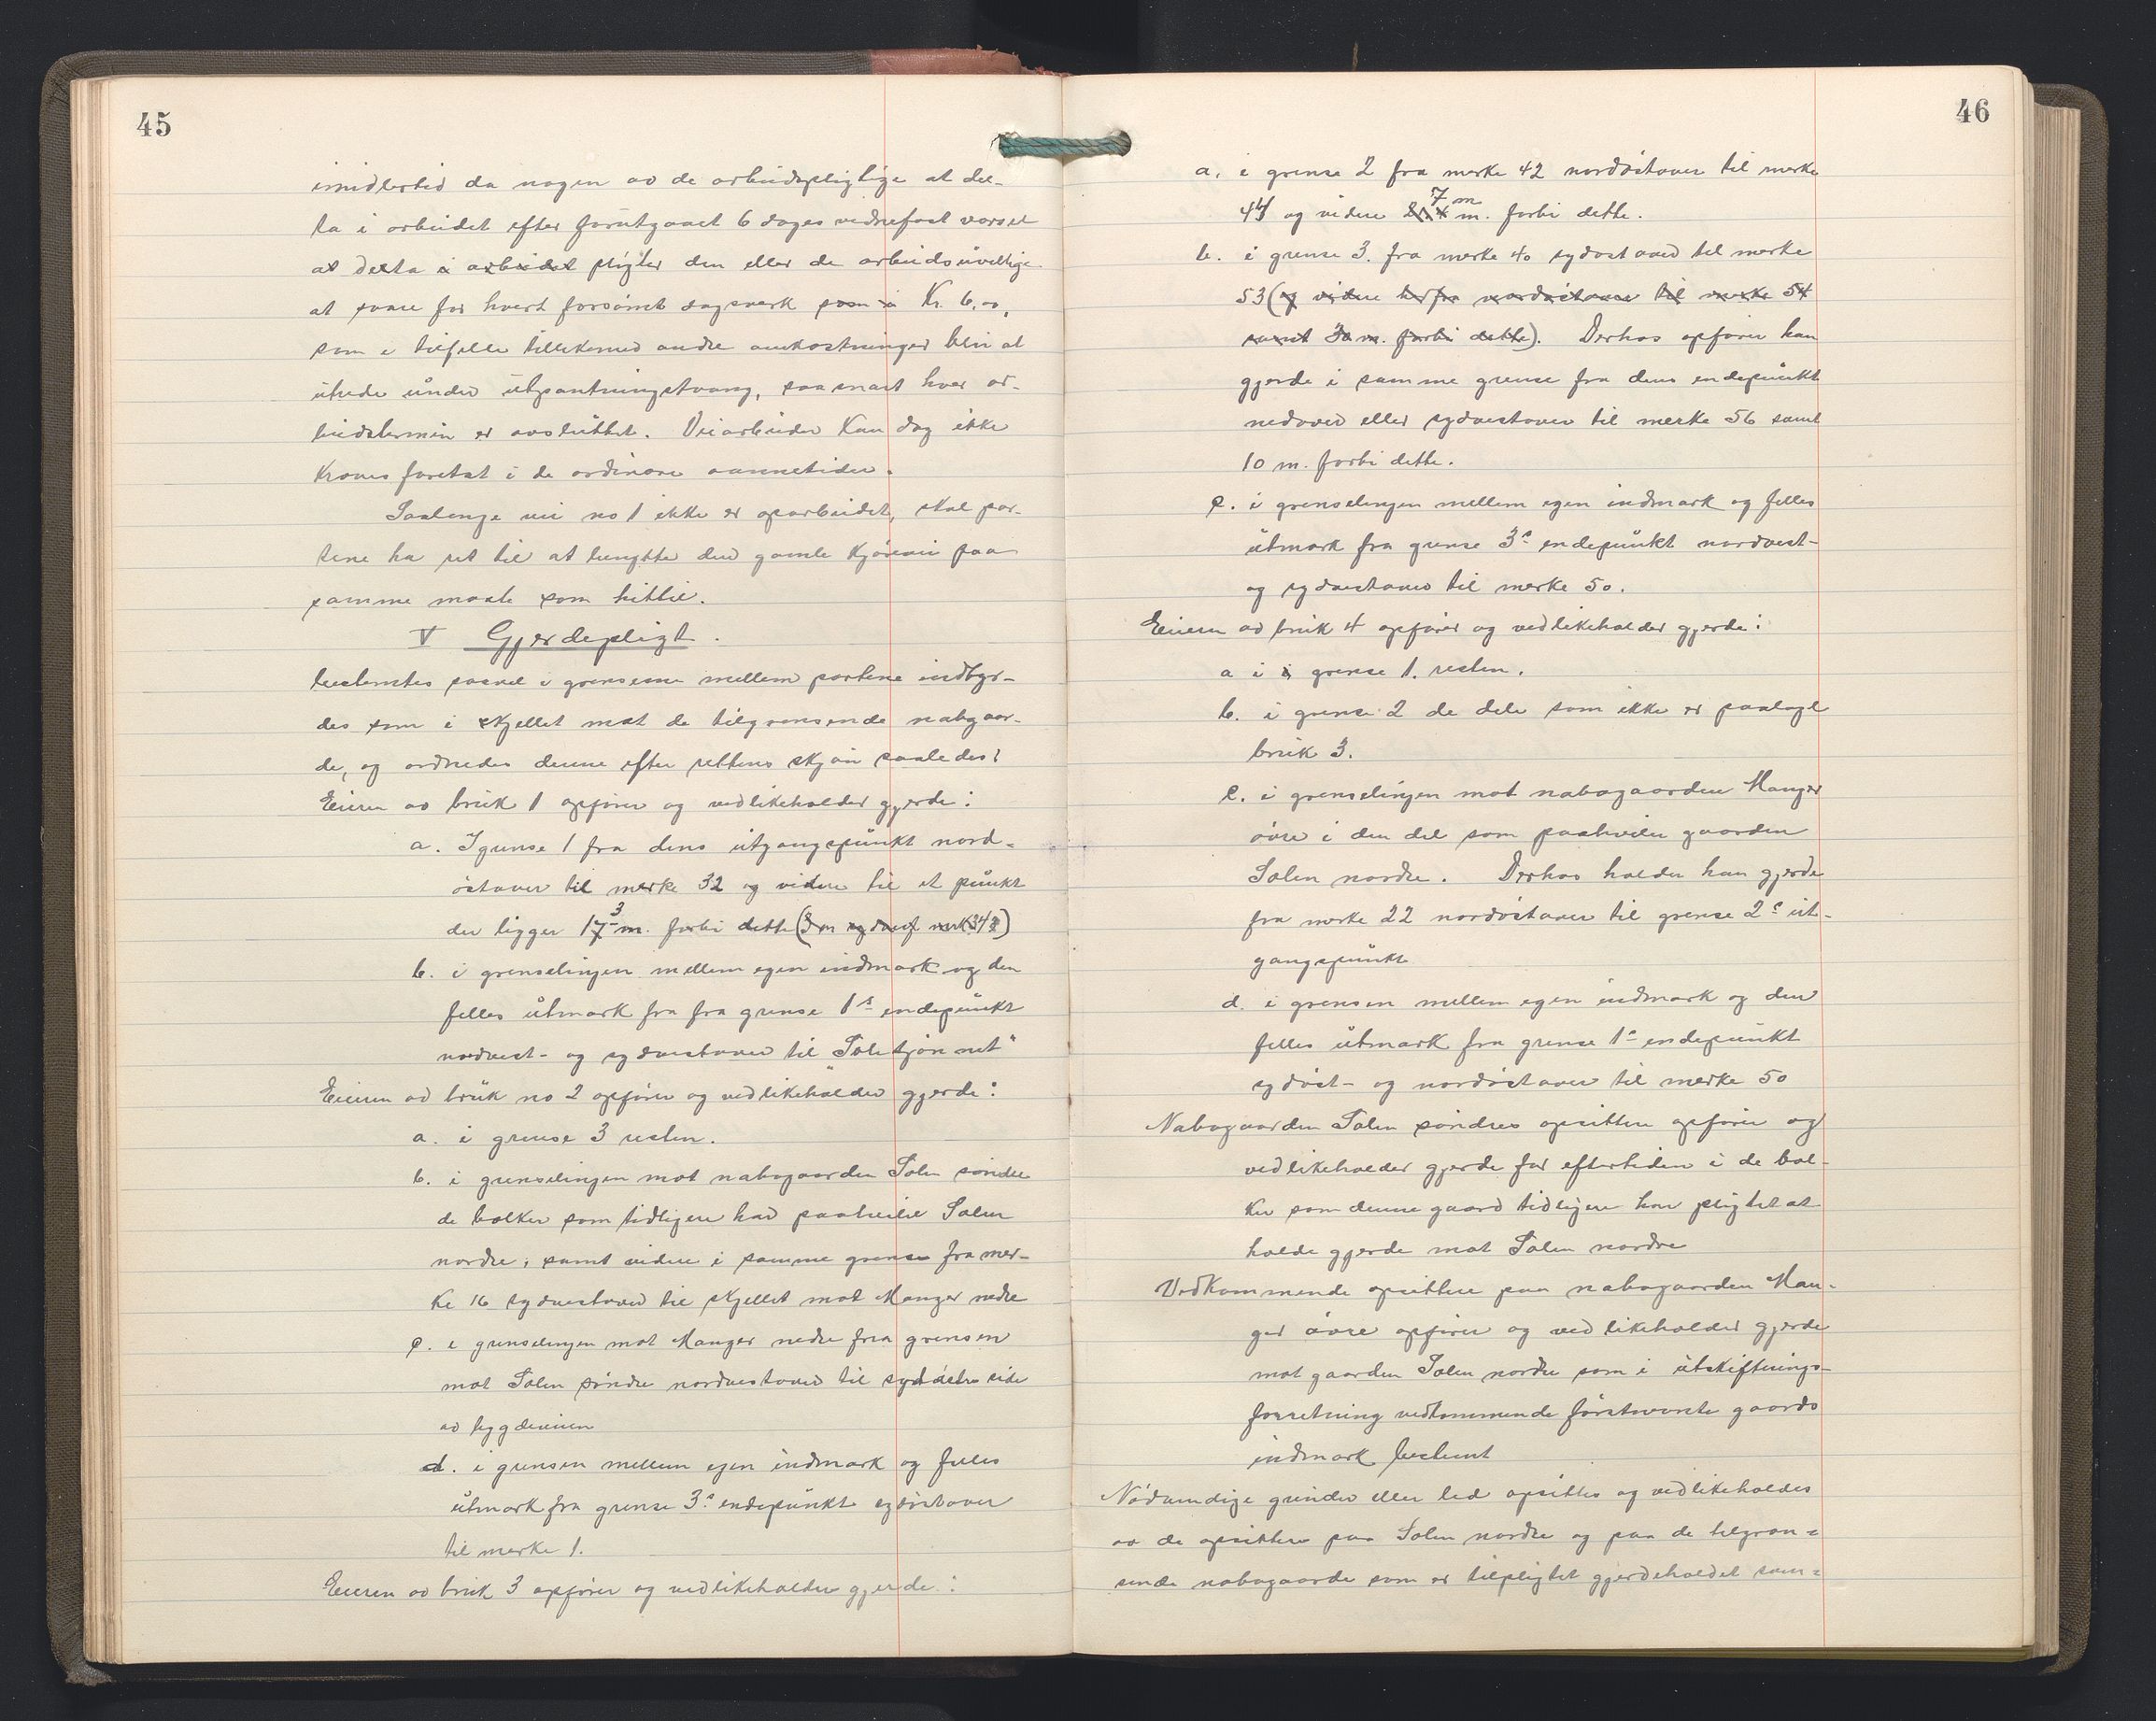 45
imidlertid da nogen av de arbeidspligtige at del-
ta i arbeidet efter forutgaaet 6 dages vidnefast varsel
at delta i arbeidet pligter den eller de arbeidsuvillige
at svare for hvert forsømt dagsverk som i Kr. 6.00,
som i tilfelle tillikemed andre omkostninger blir at
utrede under utpantningstvang, saasnart hver ar-
beidstermin er avsluttet. Veiarbeider kan dog ikke
kræves foretat i de ordinære aannetider.
Saalenge vei no 1 ikke er oparbeidet, skal par-
tene ha ret til at benytte den gamle kjørevei paa
samme maate som hittil.
V Gjerdepligt.
bestemtes saavel i grensene mellem partene indbyr-
des som i skjellet mot de tilgrensende nabogaar-
de, og ordnedes denne efter rettens skjøn saaledes:
Eieren av bruk 1 opfører og vedlikeholder gjerde:
a. I grense 1 fra dens utgangspunkt nord-
østover til merke 32 og videre til et punkt
3
der ligger 17 m. forbi dette (3 m sydvest merke 34)
b. i grenselinjen mellem egen indmark og den
felles utmark fra fra grense 1s endepunkt
nordvest- og sydvestover til "Soletjønnet"
Eieren av bruk no 2 opfører og vedlikeholder gjerde:
a. i grense 3 resten.
b. i grenselinjen mot nabogaarden Solen søndre
de bolker som tidligere har paahvilet Solen
nordre, samt videre i samme grense fra mer-
ke 16 sydvestover til skjellet mot Manger nedre
c. i grenselinjen mot Manger nedre fra grensen
mot Solen søndre nordvestover til sydøstre side
av bygdeveien
d. i grensen mellem egen indmark og felles
utmark fra grense 3s endepunkt sydøstover
til merke 1.
Eieren av bruk 3 opfører og vedlikeholder gjerde:
46
a. i grense 2 fra merke 42 nordøstover til merke
7 m
44 og videre m. forbi dette.
b. i grense 3. fra merke 40 sydvestover til merke
53 (og videre herfra nordøstover til merke 54
samt 30 m. forbi dette). Derhos opfører han
gjerde i samme grense fra dens endepunkt
nedover eller sydvestover til merke 56 samt
10 m. forbi dette.
c. i grenselinjen mellem egen indmark og felles
utmark fra grense 3s endepunkt nordvest-
og sydvestover til merke 50.
Eieren av bruk 4 opfører og vedlikeholder gjerde:
a i i grense 1. resten.
b. i grense 2 de dele som ikke er paalagt
bruk 3.
c. i grenselinjen mot nabogaarden Manger
øvre i den del som paahviler gaarden
Solen nordre. Derhos holder han gjerde
fra merke 22 nordøstover til grense 2s ut-
gangspunkt
d. i grensen mellem egen indmark og den
felles utmark fra grense 1s endepunkt
sydøst- og nordøstover til merke 50
Nabogaarden Solen søndres opsittere opfører og
vedlikeholder gjerde for eftertiden i de bol-
ker som denne gaard tidligere har pligtet at
holde gjerde mot Solen nordre
Vedkommende opsittere paa nabogaarden Man-
ger øvre opfører og vedlikeholder gjerde
mot gaarden Solen nordre som i utskiftnings-
forretning vedkommende førstnevnte gaards
indmark bestemt
Nødvendige grinder eller led opsittes og vedlikeholdes
av de opsittere paa Solen nordre og paa de tilgræn=
sende nabogaarde som er tilpligtet gjerdeholdet sam=